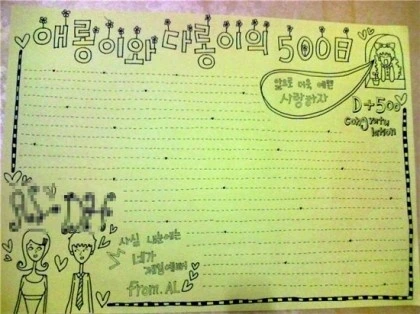 애롱이와 다롱이의 500日
앞으로 더욱 예쁜
사랑하자
D+500
congratu
lation
사실 내눈에는
네가
제일예뻐
from. AL